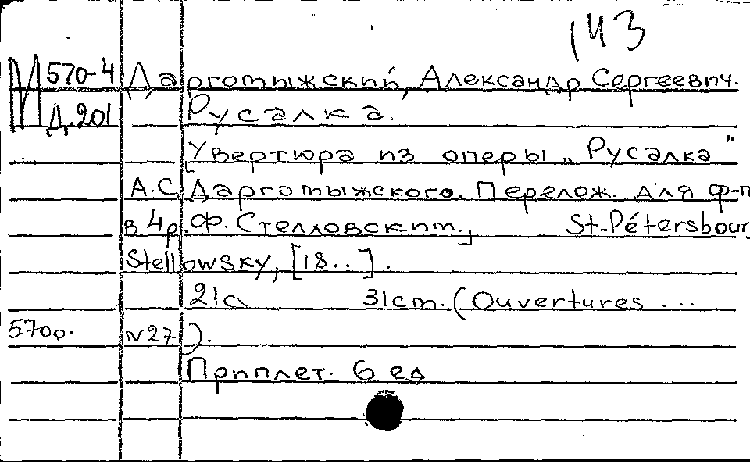 143
М 570-4 Даргомыжский, Александр Сергеевич.
Д.201 Русалка.
[Увертюра из оперы „Русалка"
А.С. Даргомыжского. Перелож. для ф-п
в 4р. Ф. Стелловским.] St.-Pétersbourg
Stellowsky, [18..].
21с 31cm. (Ouvertures ...
570р. N27).
Приплет. 6 ед